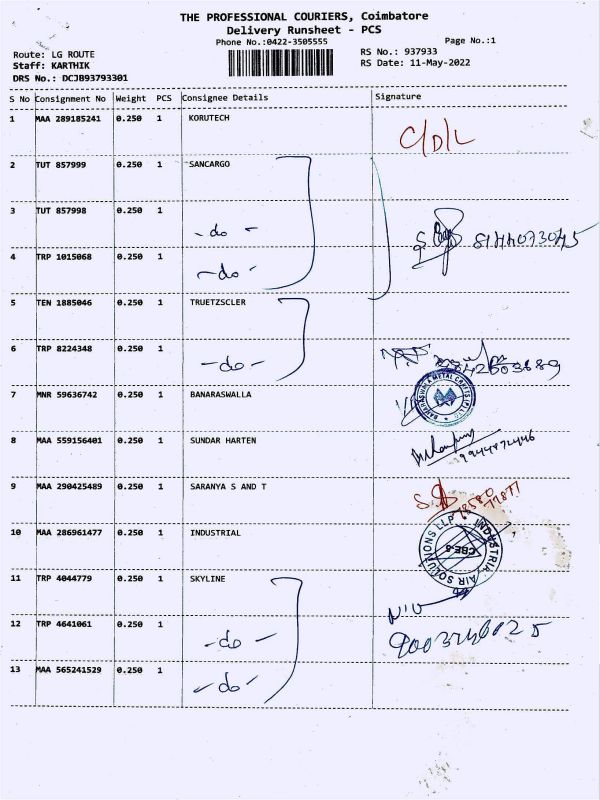 THE PROFESSIONAL COURIERS, Coimbatore
Delivery Runsheet - PCS
Phone No.:0422-3505555 Page No.:1
Route: LG ROUTE RS No.: 937933
Staff: KARTHIK RS Date: 11-May-2022
DRS No.: DCJB93793301
S No Consignment No Weight PCS Consignee Details Signature
1 MAA 289185241 0.250 1 KORUTECH C/D/L
2 TUT 857999 0.250 1 SANCARGO
3 TUT 857998 0.250 1 - do -
4 TRP 1015068 0.250 1 - do -
5 TEN 1885046 0.250 1 TRUETZSCLER
6 TRP 8224348 0.250 1 - do -
7 MNR 59636742 0.250 1 BANARASWALLA
8 MAA 559156401 0.250 1 SUNDAR HARTEN 9944472446
9 MAA 290425489 0.250 1 SARANYA S AND T
10 MAA 286961477 0.250 1 INDUSTRIAL INDUSTRIAL AIR SOLUTIONS LLP
11 TRP 4044779 0.250 1 SKYLINE
12 TRP 4641061 0.250 1 - do -
13 MAA 565241529 0.250 1 - do -